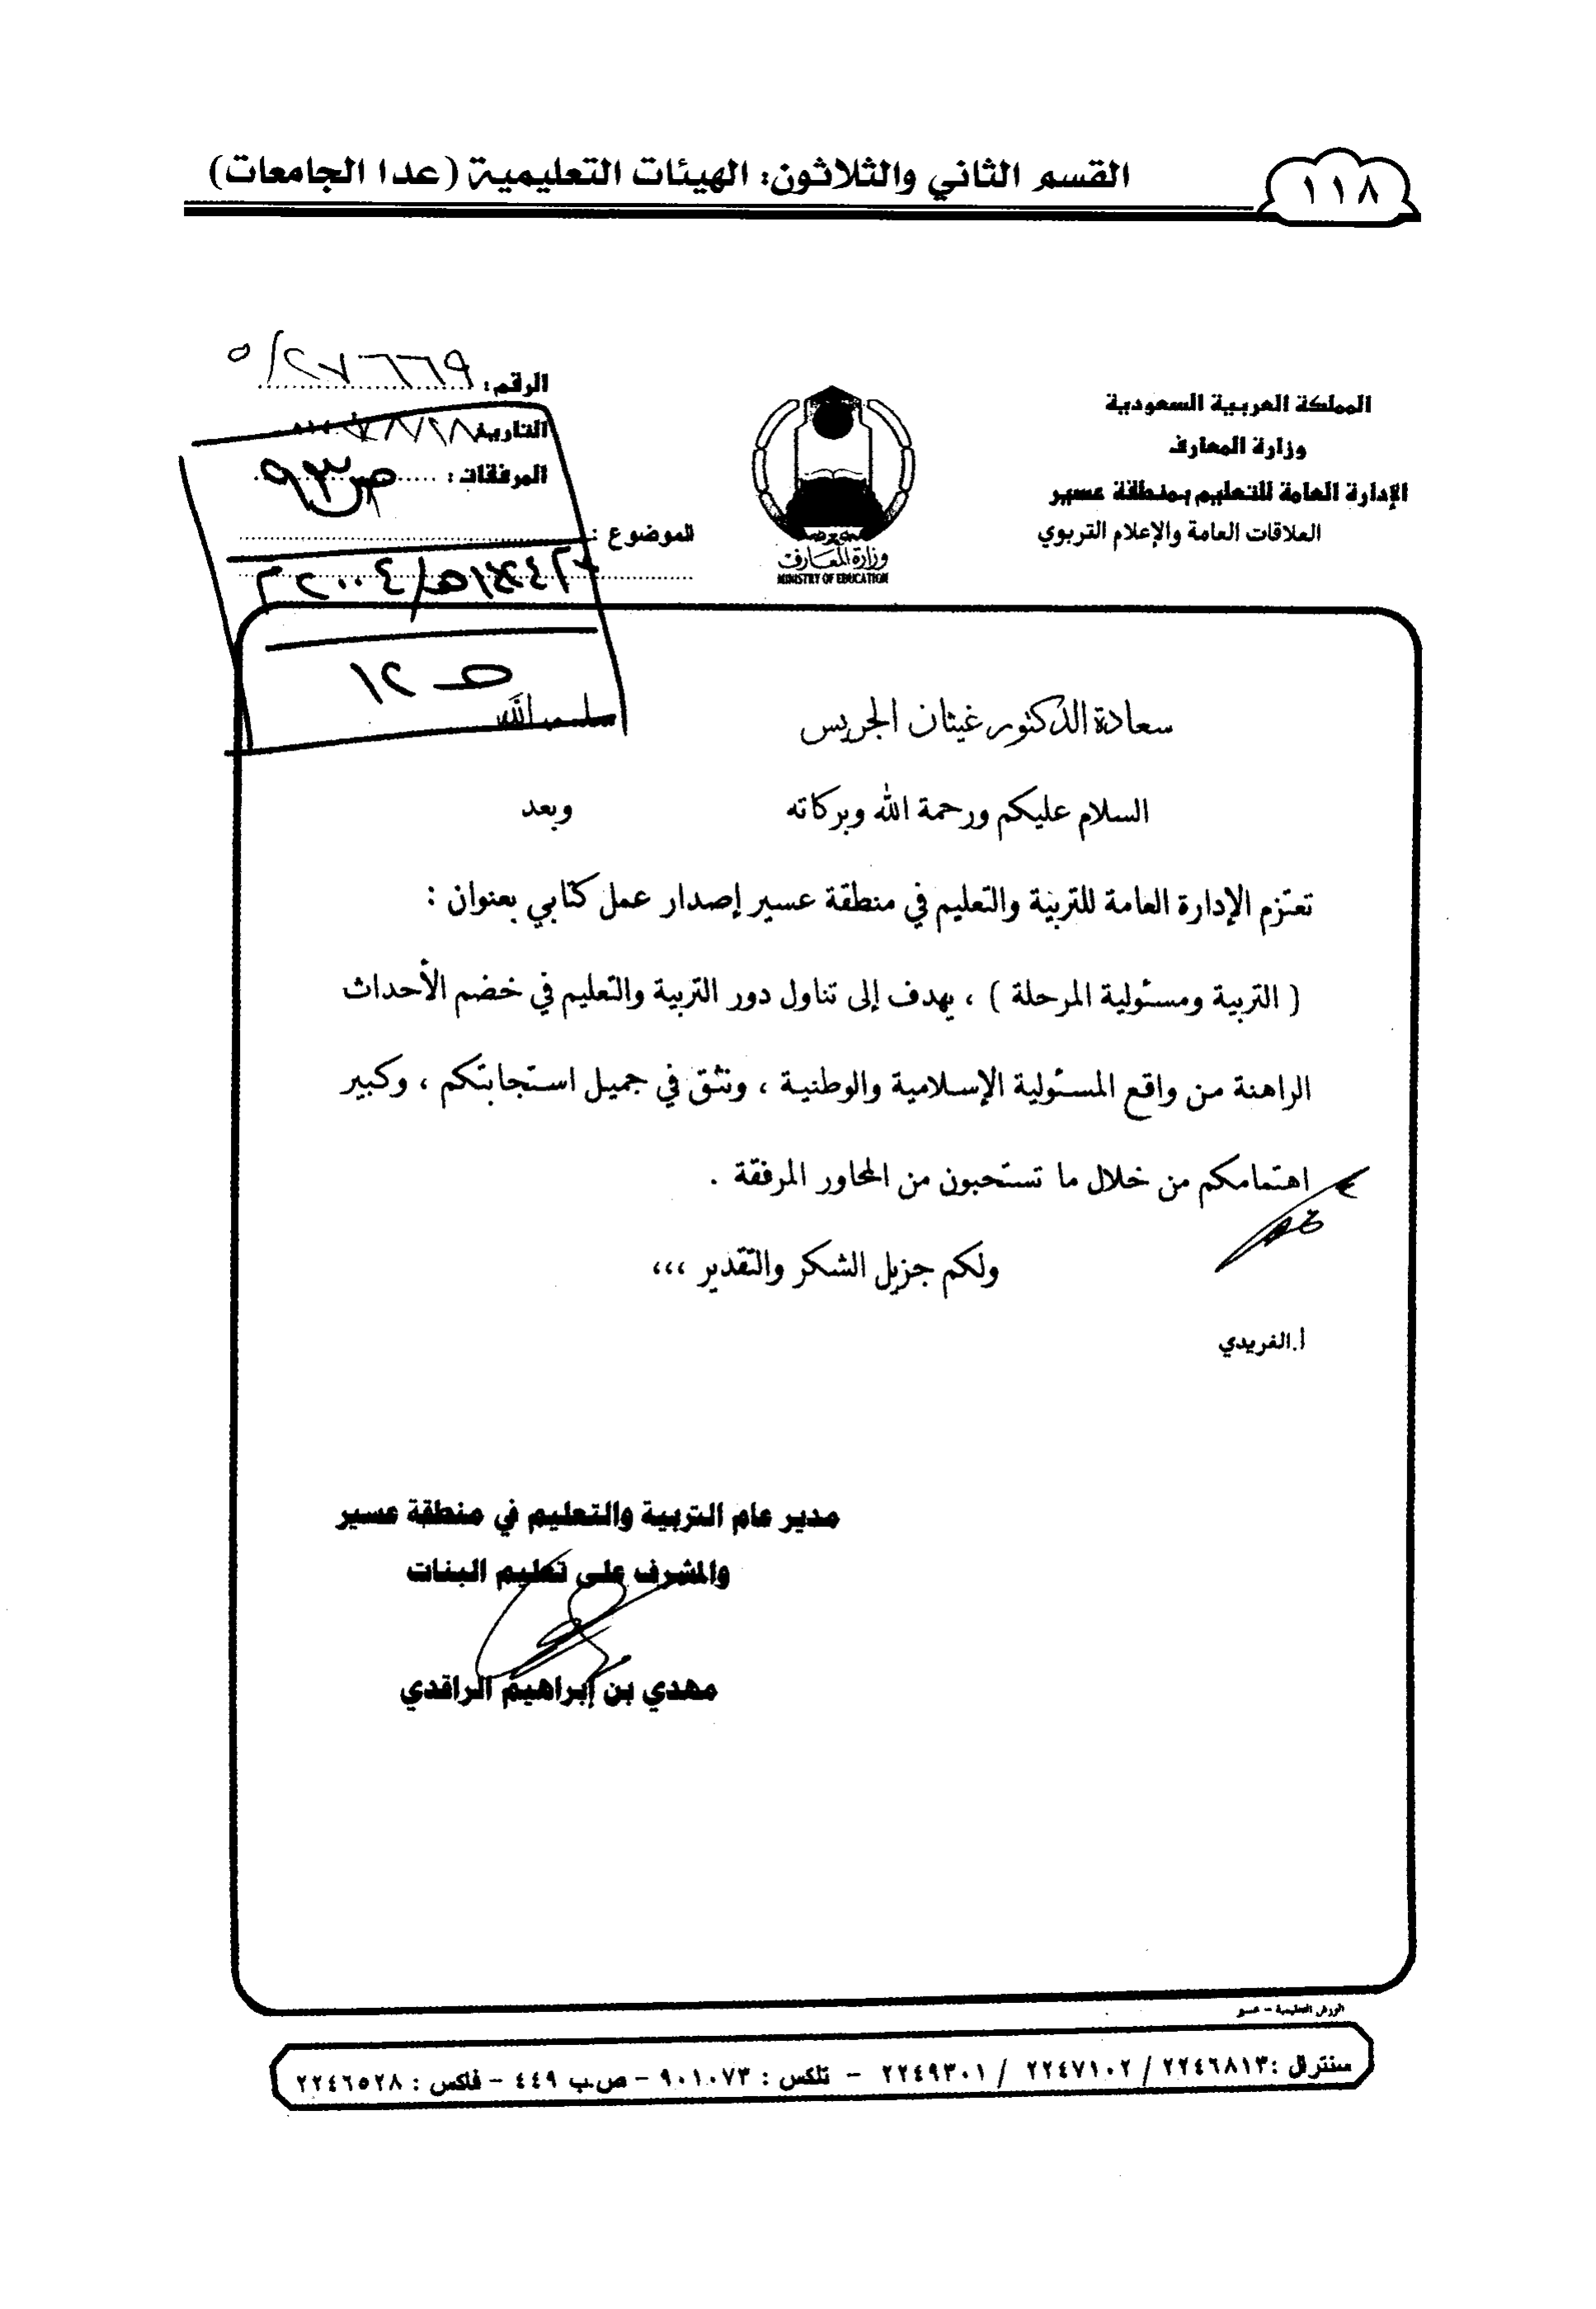 ١١٨
القسم الثاني والثلاثون: الهيئات التعليمية (عدا الجامعات)
المملكة العربية السعودية
وزارة المعارف
الإدارة العامة للتعليم بمنطقة عسير
العلاقات العامة والإعلام التربوي
وزارة المعارف
MINISTRY OF EDUCATION
الرقم :
التاريخ
المرفقات :
ص ٩٣
الموضوع :
ص ٢١
سعادة الدكتور غيثان الجريس سلمه الله
السلام عليكم ورحمة الله وبركاته وبعد
تعتزم الإدارة العامة للتربية والتعليم في منطقة عسير إصدار عمل كتابي بعنوان :
( التربية ومسئولية المرحلة ) ، يهدف إلى تناول دور التربية والتعليم في خضم الأحداث
الراهنة من واقع المسئولية الإسلامية والوطنية ، ونثق في جميل استجابتكم ، وكبير
اهتمامكم من خلال ما تستحبون من المحاور المرفقة .
ولكم جزيل الشكر والتقدير ،،،
أ.الفريدي
مدير عام التربية والتعليم في منطقة عسير
والمشرف على تعليم البنات
مهدي بن إبراهيم الراقدي
الورش التعليمية - عسير
سنترال : ٢٢٤٦٨١٣ / ٢٢٤٧١٠٢ / ٢٢٤٩٣٠١ - تلكس : ٩٠١٠٧٣ - ص.ب ٤٤٩ - فاكس : ٢٢٤٦٥٢٨